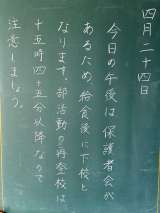 四月二十四日
今日の午後は保護者会が
あるため給食後に下校と
なります。部活動の再登校は
十五時四十五分以降なので
注意しましょう。